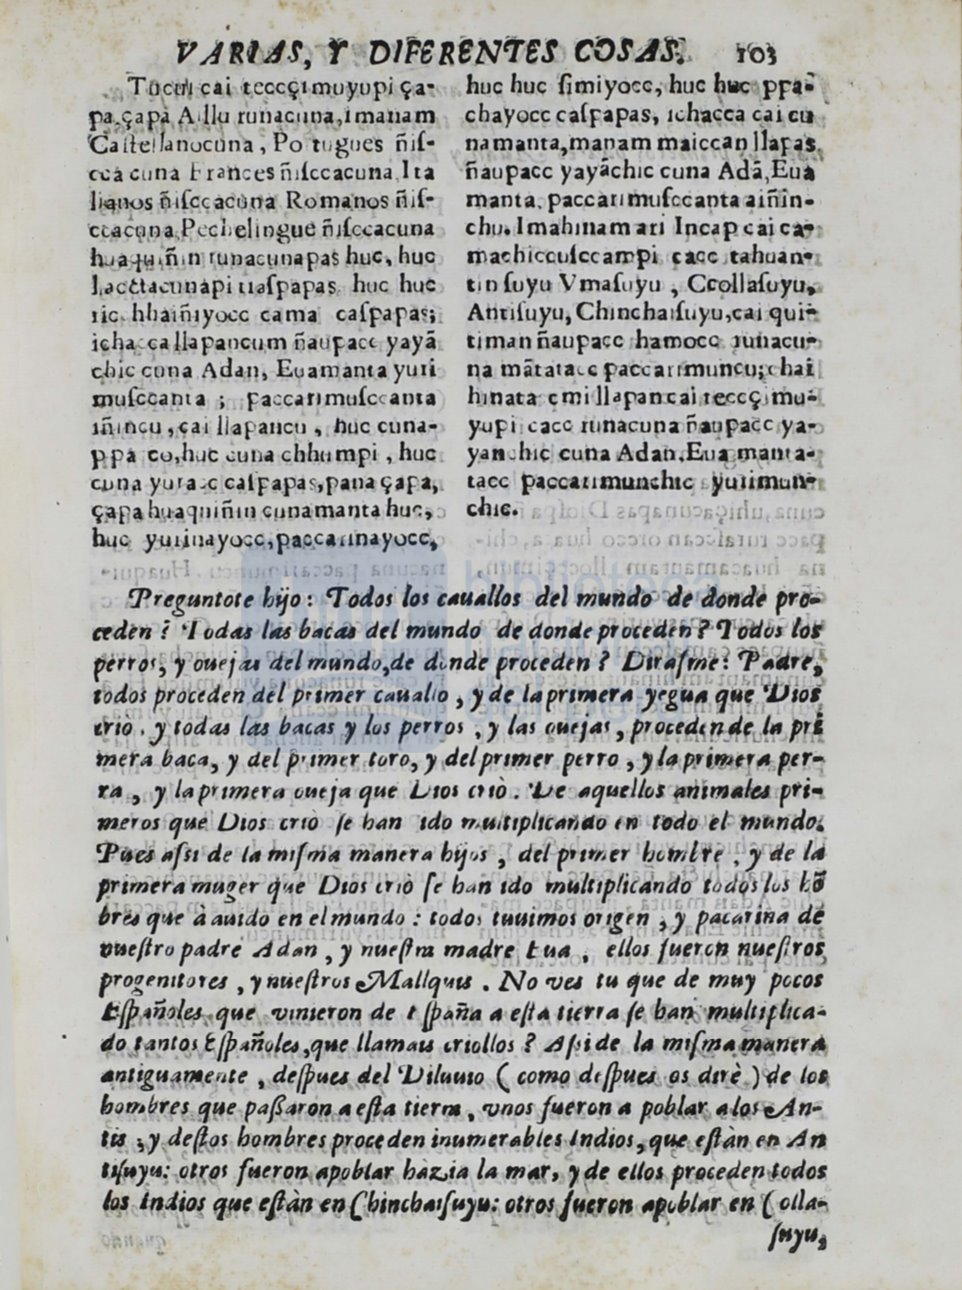 VARIAS, Y DIFERENTES COSAS. 103
Tucui cai tecccimuyupi ça-
pa,çapa Aillu runacuna,imanam
Castellanocuna, Portugues ñis-
cca cuna Frances ñisccacuna Ita
lianos ñisccacuna Romanos ñis-
ccacuna,Pechelingue ñisccacuna
huaquiñin runacunapas huc, huc
llacctacunapi tiaspapas, huc huc
ricchhaiñiyocc cama caspapas;
ichacca llapancum ñaupacc yayã
chic cuna Adan, Euamanta yuri
musccanta ; paccarimusccanta
iñincu , cai llapancu , huc cuna-
ppa co,huc cuna chhumpi , huc
cuna yuracc caspapas,pana çapa,
çapa huaquiñin cunamanta huc,
huc yurinayocc,paccarinayocc,
huc huc simiyocc, huc huc ppa-
chayocc caspapas, ichacca cai cu
namanta,manam maiccan llapas
ñaupacc yayãchic cuna Adã,Eua
manta. paccarimusccanta aiñin-
chu. Imahinam ari Incap cai ca-
machiccusccampi cacc tahuan-
tin suyu Vmasuyu , Ccollasuyu,
Antisuyu, Chinchaisuyu,cai qui-
timan ñaupacc hamocc runacu-
na mãtatacc paccarimuncu; chai
hinatacc mi llapan cai tecccimu-
yupi cacc runacuna ñaupacc ya-
yanchic cuna Adan,Eua manta-
tacc paccarimunchic yurimun-
chic.
Preguntote hijo: Todos los cauallos del mundo de donde pro-
ceden ? Todas las bacas del mundo de donde proceden ? Todos los
perros, y ouejas del mundo,de donde proceden ? Dirasme: Padre,
todos proceden del primer cauallo , y de la primera yegua que Dios
criò , y todas las bacas y los perros , y las ouejas, proceden de la pri
mera baca, y del primer toro, y del primer perro , y la primera per-
ra , y la primera oueja que Dios criò . De aquellos animales pri-
meros que Dios criò se han ido multiplicando en todo el mundo.
Pues assi de la misma manera hijos , del primer hombre , y de la
primera muger que Dios criò se han ido multiplicando todos los hõ
bres que à auido en el mundo : todos tuuimos origen , y pacarina de
nuestro padre Adan , y nuestra madre Eua , ellos fueron nuestros
progenitores , y nuestros Mallquis . No ves tu que de muy pocos
Españoles que vinieron de España a esta tierra se han multiplica-
do tantos Españoles,que llamais criollos ? Assi de la misma manera
antiguamente , despues del Diluuio ( como despues os dirè ) de los
hombres que passaron a esta tierra, vnos fueron a poblar a los An-
tis ; y destos hombres proceden inumerables Indios, que estàn en An
tisuyu: otros fueron apoblar hàzia la mar, y de ellos proceden todos
los Indios que estàn en Chinchaisuyu: otros fueron apoblar en Colla-
suyu,